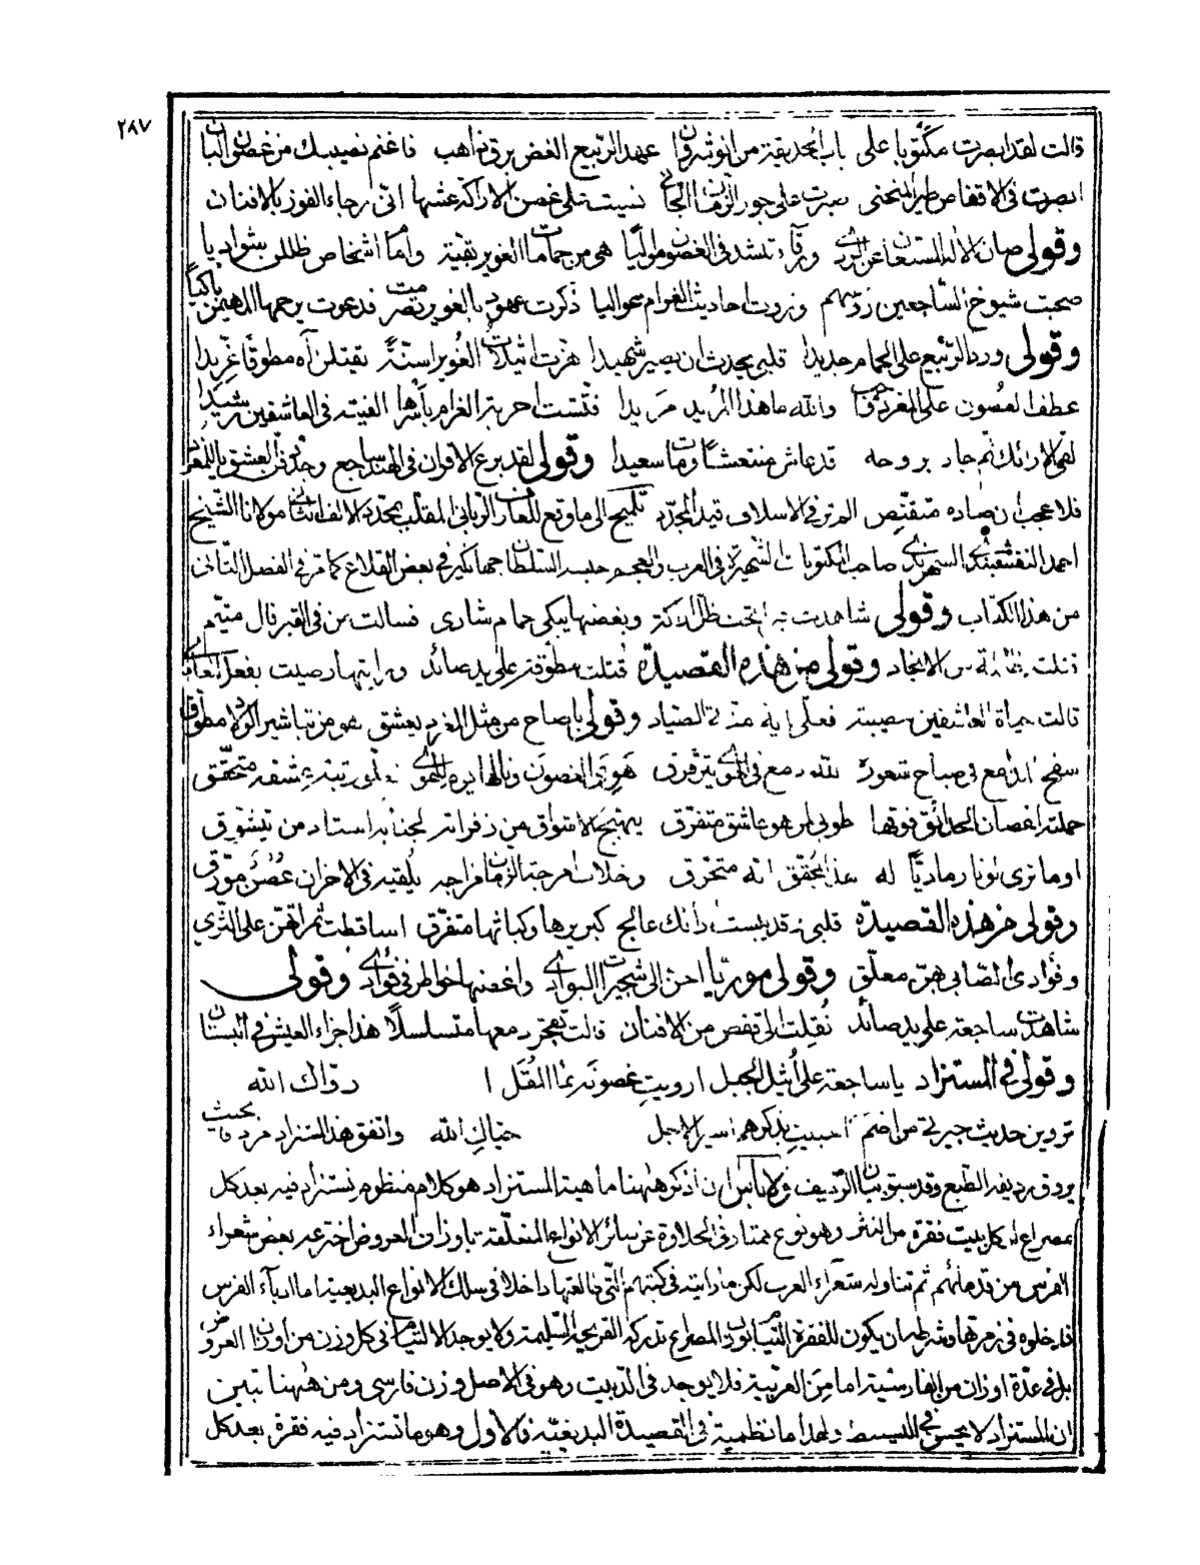 ٢٨٧
قالت لقد ابصرت مكتوبا على باب الحديقة من انوشروان عهد الربيع الغض برق ذاهب فاغنم نصيبك من غصون البان
ابصرت في الاقفاص طير المنحنى صبرت على جور الزمان الجاني نسيت على غصن الاراكة عشها اتى رجاء الفوز بالافنان
وقولي صان الاله المستعان عن الردى ورقاء تنشد في الغصون مواليا هي من حمامات الغوير بقية واما اشخاص ظللن بثواديا
صحت شيوخ الساجعين زوتهم وزوت احاديث الغرام عواليا ذكرت عهود بالغوير تصرمت فدعوت يرحمها المهيمن باكيا
وقولي ورد الربيع على الحمام جديدا قلبي يحدث ان يصير شهيدا هزت اثيلات الغوير اسنة يقتلن آه مطوقا غريدا
عطف الغصون على المغرد خوفا والله ما هذا المريد مريدا فتشت احربة الغرام بأسرها الفيته في العاشقين رشيدا
لقي الارائك ثم جاد بروحه قد عاش منتعشا ومات سعيدا وقولي لقد برع الاقران في الهند ساجع وجدد فن العشق يا للمغرد
فلا عجب ان صاده متقنص المتر في الاسلاف قيد المجدد تلميح الى ما وقع للعارف الرباني الملقب بمجدد الالف الثاني مولانا الشيخ
احمد النقشبندي السهرندي صاحب المكتوبات الشهيرة في العرب والعجم حبسه السلطان جهانكير في بعض القلاع كما مر في الفصل الثاني
من هذا الكتاب وقولي شاهدت تحت ظل الاراكة وبغصنها يبكي حمام شادي فسالت من في القبر قال متيم
من الانجاد وقولي من هذه القصيدة قتلت مطوقة على يد صائد ورايتها رضيت بفعل العادي
قالت حياة العاشقين مصيبة فعلي منة الصياد وقولي يا صاح من مثل المغرد يعشق هو من تباشير الولادة مطوق
سفح المدامع في صباح شعوره لله دمع في الهوى يترقرق هو يرى الغصون ونالها يوم الهوى بعشقه متحقق
حملته اغصان الحدائق فوقها طوبى لمن هو عاشق متفرق يهتج الاشواق من زفراته لجنابه استاد من يتشوق
او ما ترى ثوبا رماديا له هذا المحقق انه متحرق وخلاف امرجة الزمان مزاجه يلقيه في الاحزان غصن مورق
وقولي من هذه القصيدة قلبي قد يبست دأنك عالج كبر بريرها وكباثها متفرق اساقطت ثمراتهن على الثرى
وفؤادي الصابي بهن معلق وقولي موريا احن الى شجيرات البوادي واغصنها خواطر في فؤادي وقولي
شاهدت ساجعة على يد صائد نقلت الى قفص من الافنان قالت تهجر معها متسلسلا هذا جزاء العيش في البستان
وقولي في المستزاد يا ساجعة على اثيل الجبل ارويت غصونه بماء المقل رواك الله
تروين حديث جيرة من اضم احببيت بذكرهم اسير الاجل حياك الله واتفق هذا المستزاد مردفا بحيث
يروق رديفه الطبع وقد سبق بيان الرديف ولا بأس ان اذكر ههنا ماهية المستزاد هو كلام منظوم يستزاد فيه بعد كل
مصراع او كل بيت فقرة من النثر وهو نوع ممتاز في الحلاوة عن سائر الانواع المتعلقة باوزان العروض اخترعه بعض شعراء
الفرس من قدمائهم ثم تناوله شعراء العرب لكن ما رايته في كتبهم التي طالعتها داخلا في سلك الانواع البديعية اما ادباء الفرس
فادخلوه في زمرتها وشرطه ان يكون للفقرة التيام بوزن المصراع تدركه القريحة السليمة ولا يوجد الالتيام في كل وزن من اوزان العروض
بل في عدة اوزان من الفارسية اما من العربية فلا يوجد في الدبيت وهو في الاصل وزن فارسي ومن ههنا تبين
ان المستزاد لا يحسن في البسيط ولهذا ما نظمته في القصيدة البديعية فالاول وهو ما تستزاد فيه فقرة بعد كل